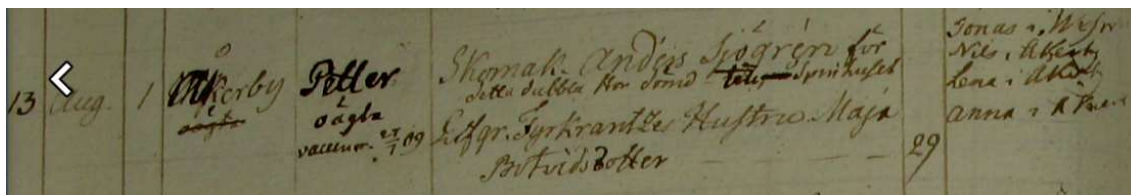 13 Aug. 1 Åkerby
oägta
Petter
oägta
vaccin. 27/7 09
Skomak. Anders Sjögrén för
detta dubbla Hor dömd Spinhuset
Lifgr. Fyrkrantzes Hustru Maja
Botvidsdotter 29
Jonas i
Nils i Åkerby
Lena i Åkerby
Anna i Åkerby